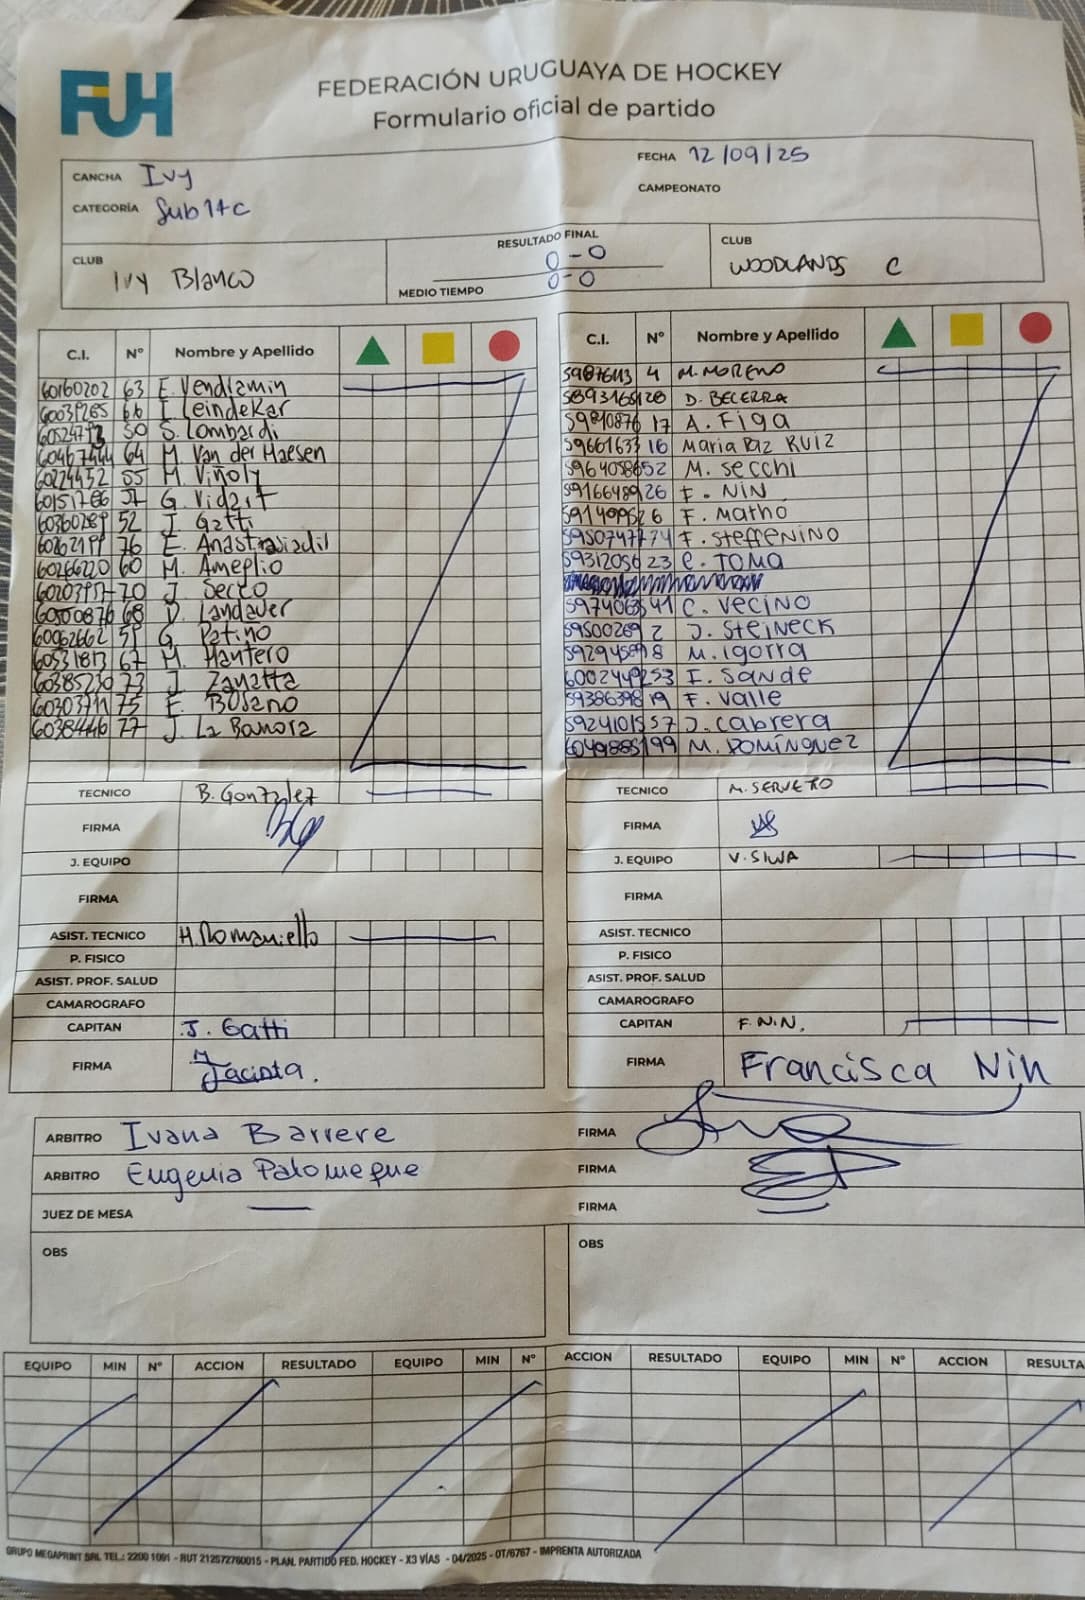 FUH
FEDERACIÓN URUGUAYA DE HOCKEY
Formulario oficial de partido
CANCHA Ivy
FECHA 12/09/25
CATEGORÍA Sub14C
CAMPEONATO
CLUB Ivy Blanco
RESULTADO FINAL 0-0
MEDIO TIEMPO 0-0
CLUB WOODLANDS C
C.I. Nº Nombre y Apellido
60160202 63 E. Vendramin
66 I. Leindekar
50 S. Lombardi
64 M. Van der Maesen
60224452 55 M. Viñoly
G. Vidart
60360289 52 J. Gatti
76 E. Anastasiadil
60266220 60 M. Ameglio
70 J. Secco
68 D. Landauer
60062662 G. Patiño
60531813 67 M. Mantero
60385230 73 J. Zanatta
60303711 75 E. Bosano
60384446 77 J. La Bamora
TECNICO B. Gonzalez
FIRMA
J. EQUIPO
FIRMA
ASIST. TECNICO H. Romaniello
P. FISICO
ASIST. PROF. SALUD
CAMAROGRAFO
CAPITAN J. Gatti
FIRMA Jacinta.
C.I. Nº Nombre y Apellido
59876113 4 M. MORENO
D. BECERRA
59810876 17 A. Figa
59661633 16 Maria Paz RUIZ
52 M. Secchi
59166489 26 F. NIN
6 F. Matho
74 F. STEFFENINO
59312056 23 C. TOMA
59740635 41 C. VECINO
59500269 2 J. STEINECK
8 M. Igorra
53 I. SANDE
59386398 19 F. Valle
59241015 57 J. Cabrera
60498851 99 M. DOMÍNGUEZ
TECNICO M. SERVETTO
FIRMA
J. EQUIPO V. SILVA
FIRMA
ASIST. TECNICO
P. FISICO
ASIST. PROF. SALUD
CAMAROGRAFO
CAPITAN F. NIN.
FIRMA Francisca Nin
ARBITRO Ivana Barrere FIRMA
ARBITRO Eugenia Palomeque FIRMA
JUEZ DE MESA FIRMA
OBS OBS
EQUIPO MIN Nº ACCION RESULTADO EQUIPO MIN Nº ACCION RESULTADO EQUIPO MIN Nº ACCION RESULTA
GRUPO MEGAPRINT SRL TEL.: 2200 1091 - RUT 212572760015 - PLAN. PARTIDO FED. HOCKEY - X3 VÍAS - 04/2025 - OT/6767 - IMPRENTA AUTORIZADA